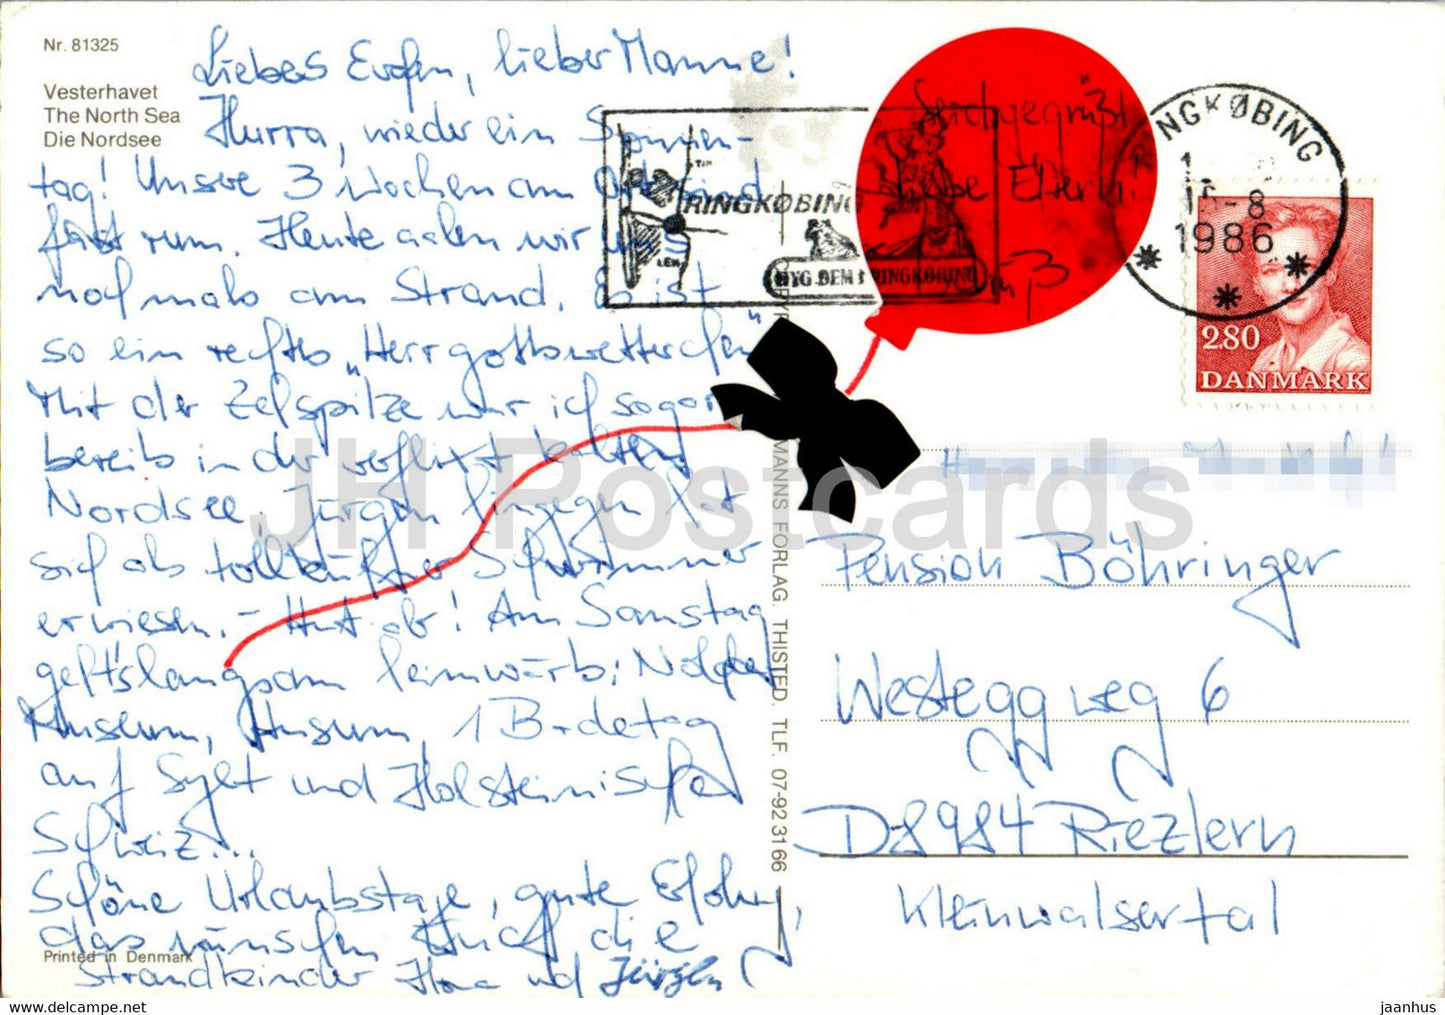 Nr. 81325
Vesterhavet
The North Sea
Die Nordsee
Liebes Evchen, lieber Manne!
Hurra, wieder ein Sonnen-
tag! Unsere 3 Wochen am
fast rum. Heute aalen wir uns
nochmals am Strand. Es ist
so ein rechtes „Herrgottswetterchen"
Mit der Zehspitze war ich sogar
bereits in der verflixt kalten
Nordsee. Jürgen hingegen hat
sich als tollkühner Schwimmer
erwiesen. - Hut ab! Am Samstag
geht's langsam heimwärts: Nolde
Museum, Husum, 1 Badetag
auf Sylt und Holsteinische
Schweiz...
Schöne Urlaubstage, gute Erholung,
das wünschen Euch die
Strandkinder und Jürgen
Printed in Denmark
MANNS FORLAG. THISTED. TLF. 07-92 31 66
liebe Eltern.
RINGKØBING
RINGKØBING
BYG DEM I RINGKØBING
8
1986
2.80
DANMARK
Pension Böhringer
Westeggweg 6
D-8984 Riezlern
Kleinwalsertal
JH Postcards
https://www.oldpostcard.net
jaanhus